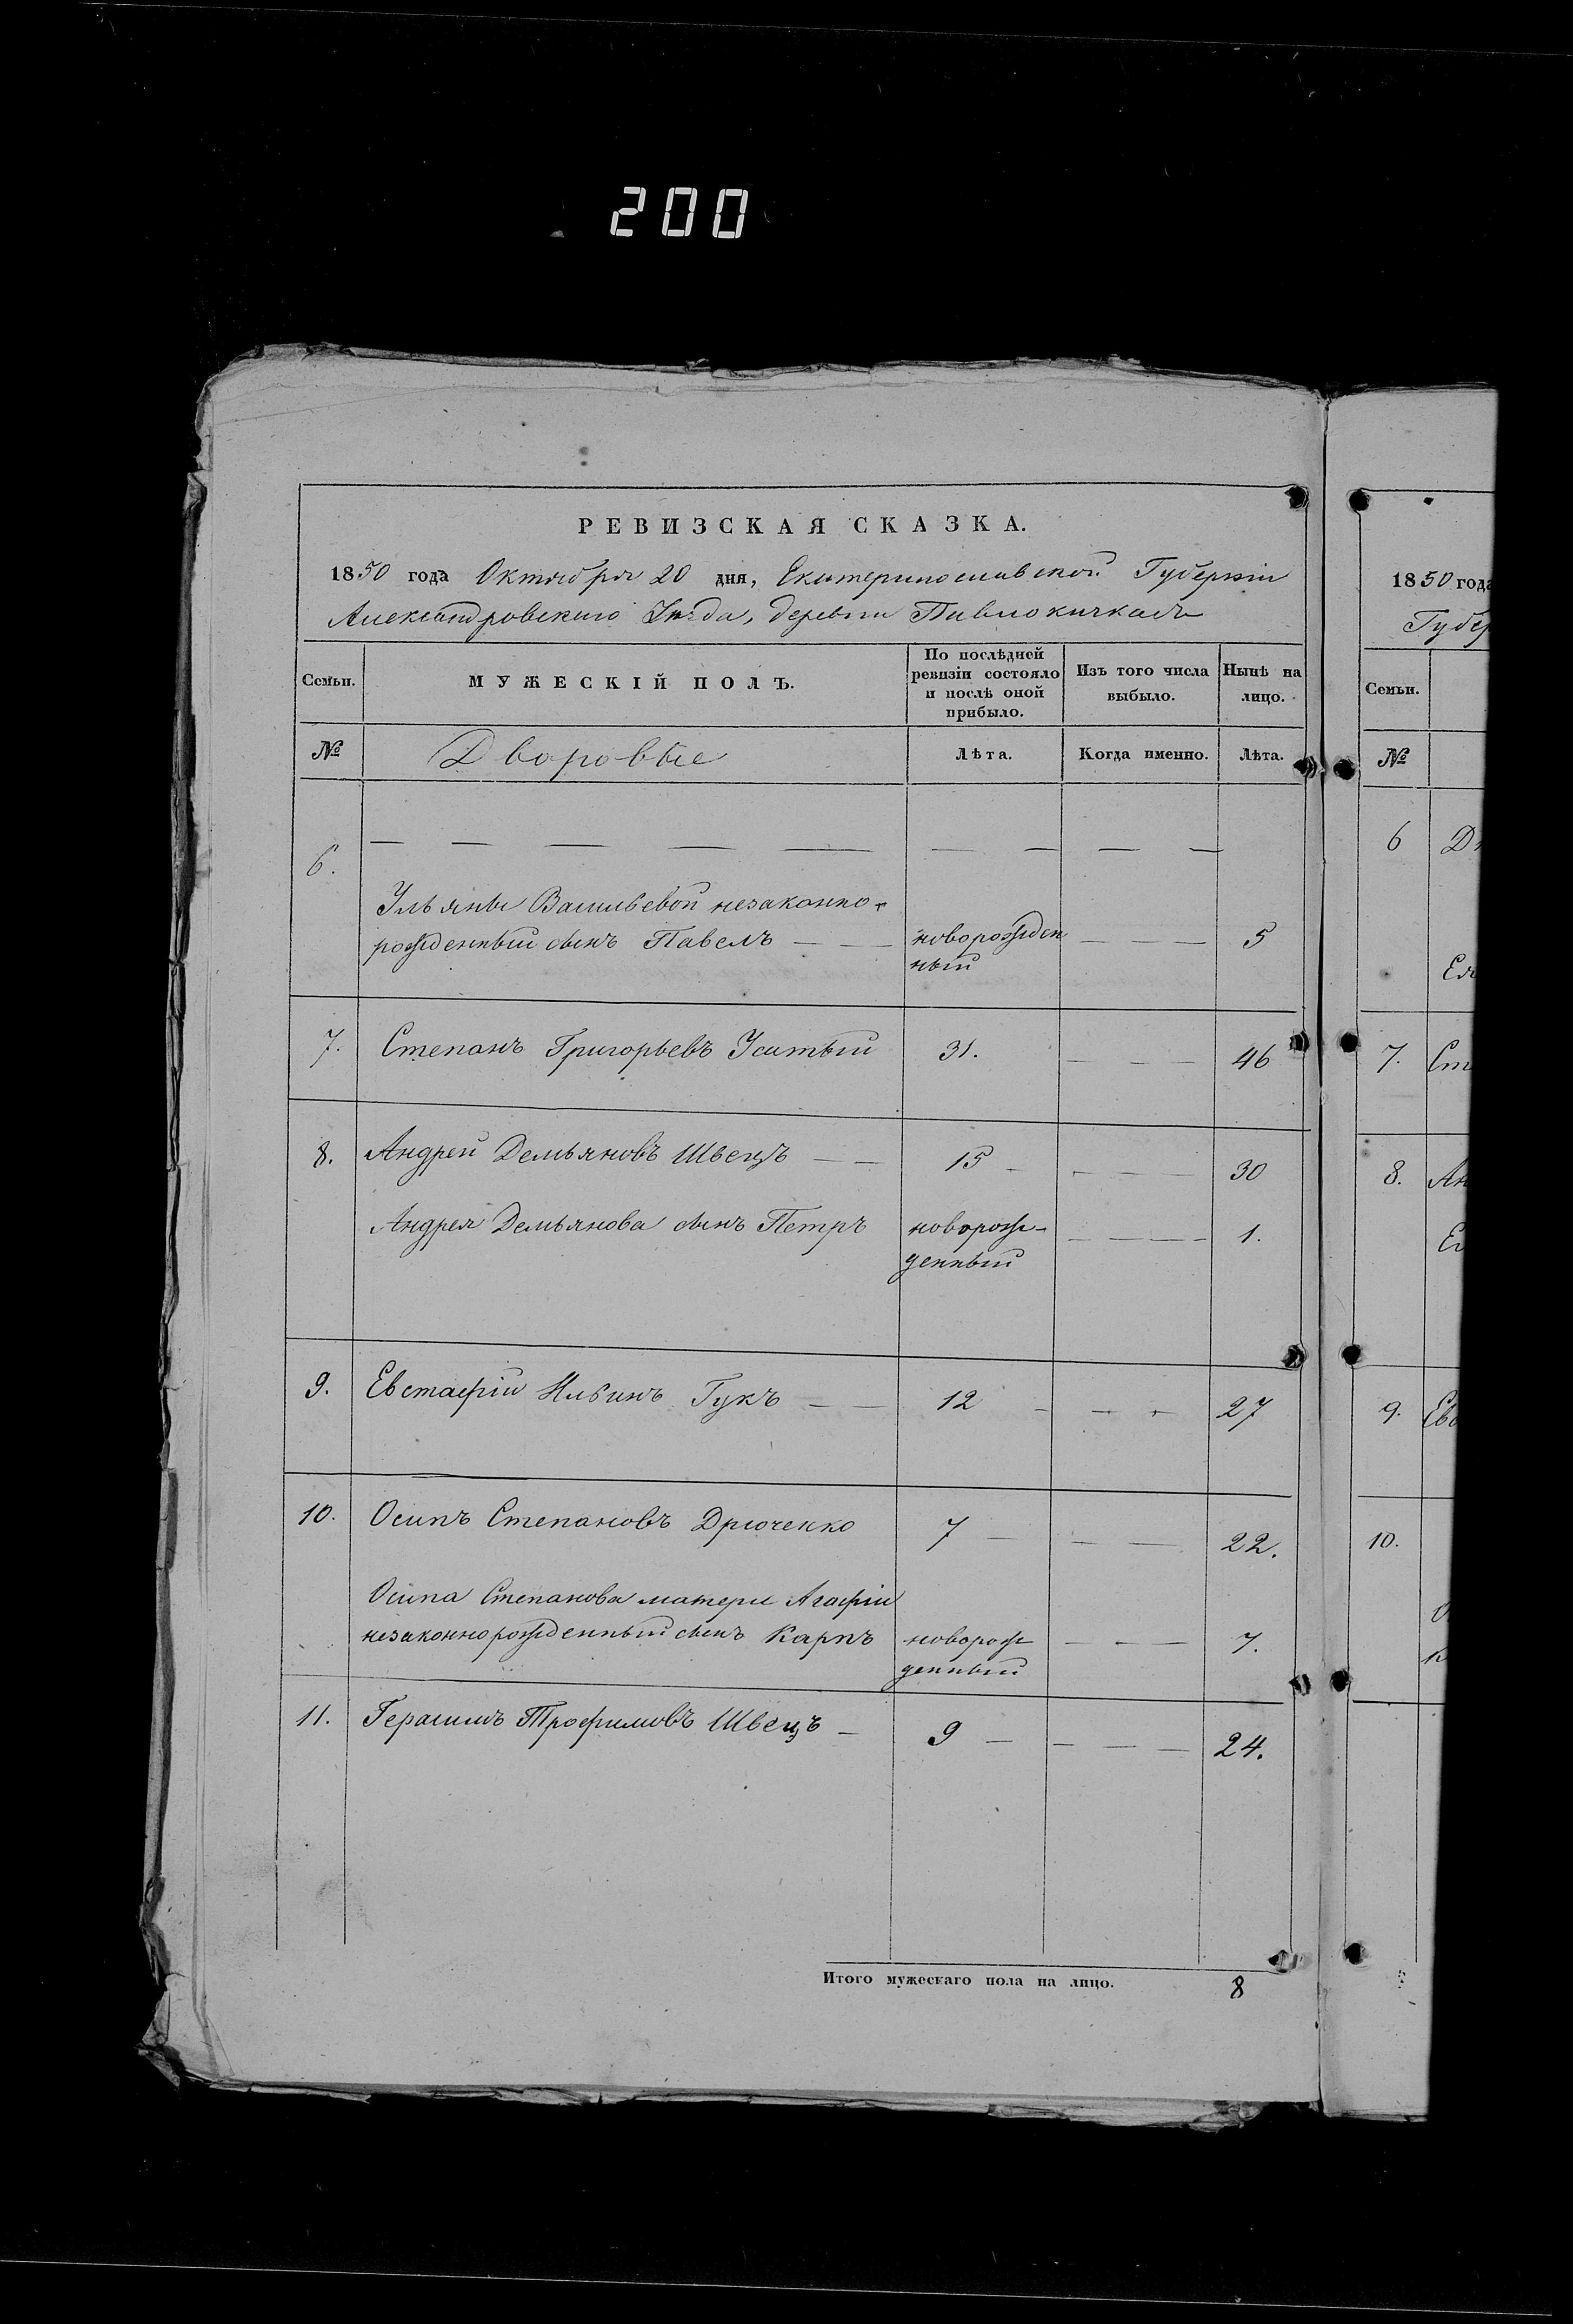 200
РЕВИЗСКАЯ СКАЗКА.
1850 года Октября 20 дня, Екатеринославской Губерніи
Александровскаго Уѣзда, деревни Павлокичкасъ
Семьи.
МУЖЕСКІЙ ПОЛЪ.
По послѣдней
ревизіи состояло
и послѣ оной
прибыло.
Изъ того числа
выбыло.
Нынѣ на
лицо.
№ Дворовые Лѣта. Когда именно. Лѣта.
6.
Ульяны Васильевой незаконно-
рожденный сынъ Павелъ — — новорожден — — 5
ный
7. Степанъ Григорьевъ Усатый 31. — — — 46
8. Андрей Демьяновъ Швецъ — — 15 — — — — 30
Андрея Демьянова сынъ Петръ новорож- — — — — 1.
денный
9. Евстафій Ильинъ Гукъ — — 12 — — — 27
10. Осипъ Степановъ Дрюченко 7 — — — 22.
Осипа Степанова матери Агафіи
незаконнорожденный сынъ Карпъ новорож — — — 7.
денный
11. Герасимъ Трофимовъ Швецъ — 9 — — — — 24.
Итого мужескаго пола на лицо. 8
1850 года
Губер
Семьи.
№
6
Ел
7. Ст
8. Ан
9. Евс
10.